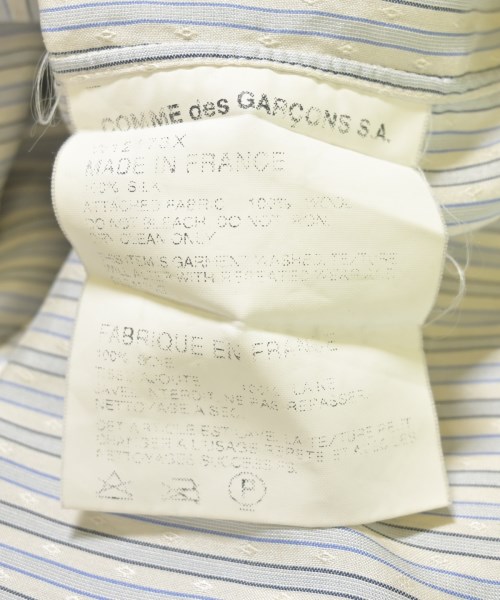 COMME des GARÇONS S.A.
MADE IN FRANCE
100% SILK
ATTACHED FABRIC 100% WOOL
DO NOT BLEACH, DO NOT IRON
DRY CLEAN ONLY
THIS ITEM IS GARMENT WASHED, TEXTURE
WITH REPEATED
FABRIQUE EN FRANCE
100% SOIE
TISSU AJOUTE 100% LAINE
LAVAGE INTERDIT, NE PAS REPASSER
NETTOYAGE A SEC
CET ARTICLE EST LAVE LA TEXTURE PEUT
A L USAGE REPETE ET AUX LES
NETTOYAGES SUCCESSIFS
P